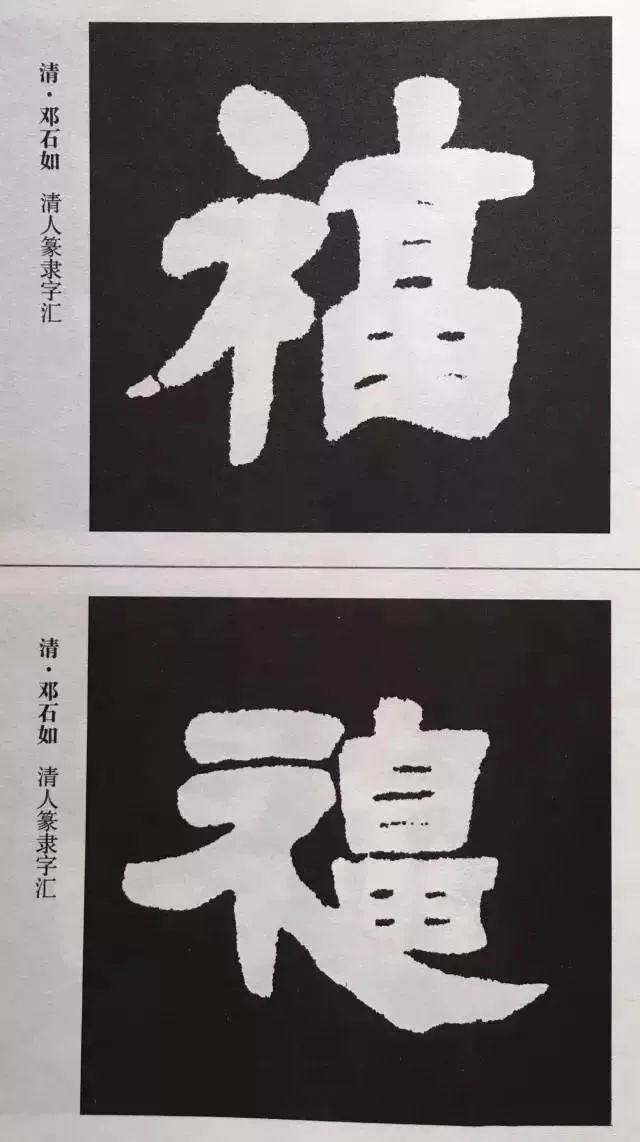 清·邓石如 清人篆隶字汇
福
清·邓石如 清人篆隶字汇